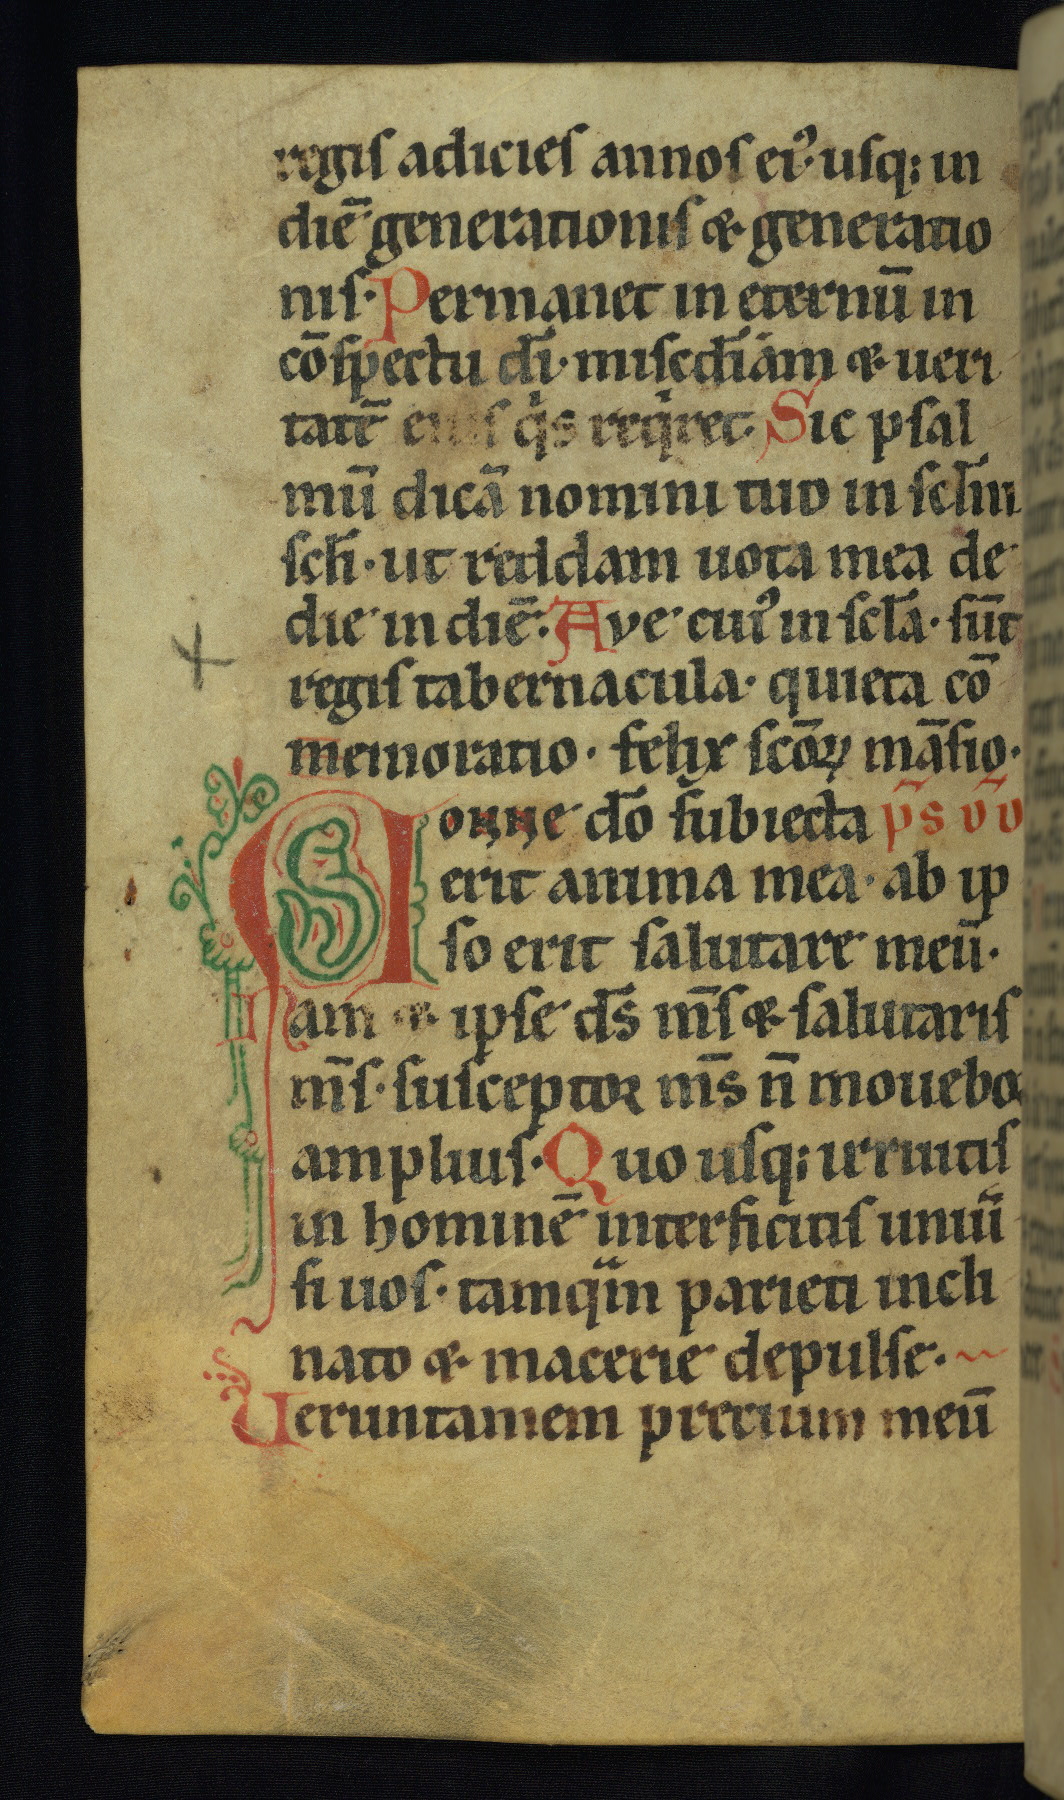 regis adicies annos ei᾽ usq; in
diē generationis & generatio
nis. Permanet in eternū in
cōspectu dī. misc̄diam & ueri
tatē eius qͥs reqͥret. Sic psal
mū dicā nomini tuo in sclm̄
sclī. ut reddam uota mea de
die in diē. Aue cui᾽ in sclā. sūt
regis tabernacula. quieta cō
memoratio. felix scōꝝ māsio.
Nonne dō subiecta
erit anima mea. ab ip
so erit salutare meū.
Nam & ipse ds̄ ms̄ & salutaris
ms̄. susceptor ms̄ n̄ mouebor
amplius. Quo usq; irruitis
in hominē interficitis uniuͥ
si uos. tamqͣm parieti incli
nato & macerie depulse.
Ueruntamem pretium meū